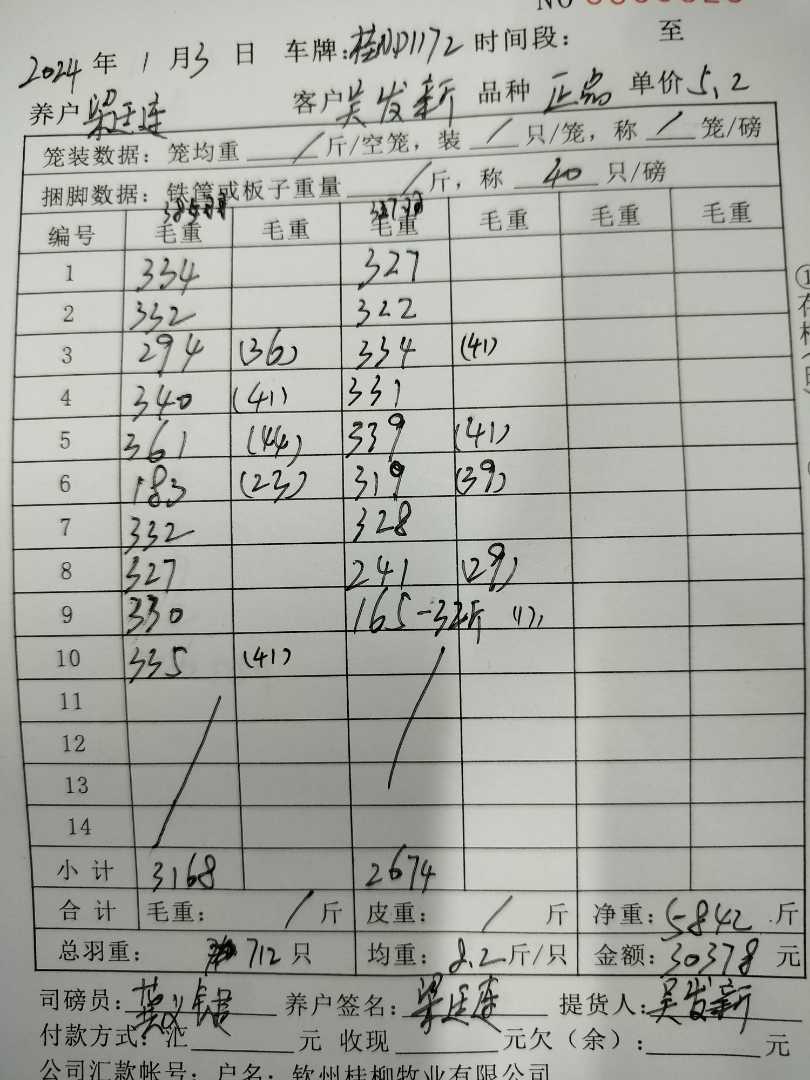 NO
2024 年 1 月 3 日 车牌: 桂ND1172 时间段: 至
养户 梁廷连 客户 吴发新 品种 正品 单价 5.2
笼装数据: 笼均重 / 斤/空笼, 装 / 只/笼, 称 / 笼/磅
捆脚数据: 铁管或板子重量 / 斤, 称 40 只/磅
编号 毛重 毛重 毛重 毛重 毛重 毛重
1 334 327
2 332 322
3 294 (36) 334 (41)
4 340 (41) 331
5 361 (44) 339 (41)
6 183 (23) 319 (39)
7 332 328
8 327 241 (29)
9 330 165-32斤
10 335 (41) /
11 /
12
13
14
小计 3168 2674
合计 毛重: / 斤 皮重: / 斤 净重: 5842 斤
总羽重: 712 只 均重: 8.2 斤/只 金额: 30378 元
司磅员: 养户签名: 梁廷连 提货人: 吴发新
付款方式: 汇 元 收现 元欠(余): 元
公司汇款帐号: 户名: 钦州桂柳牧业有限公司